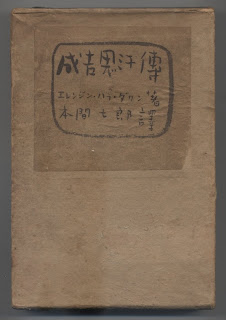 成吉思汗傳
エレンジン・ハラ・ダワン著
本間七郎譯